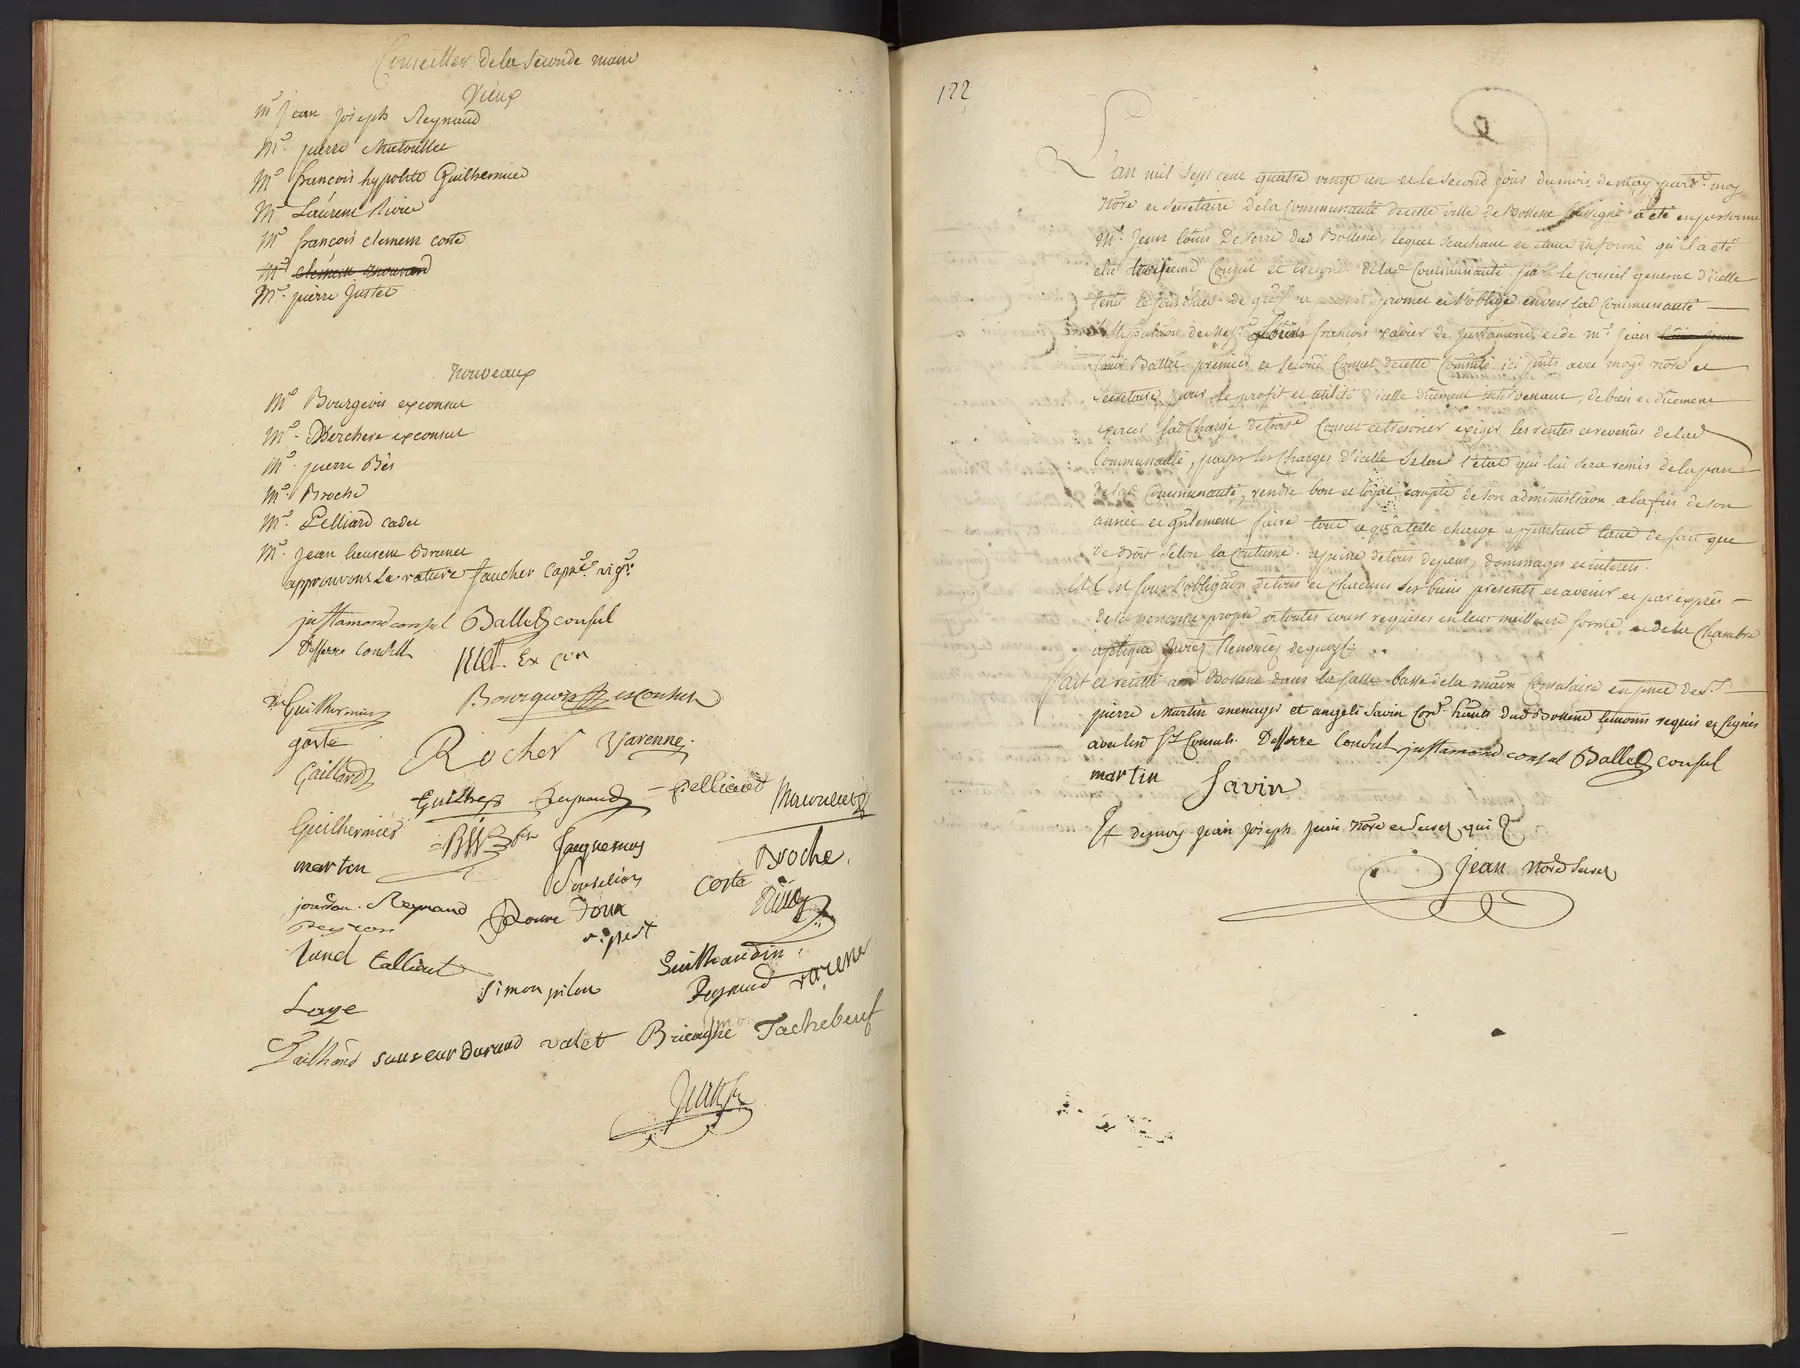 Conseiller de la Seconde main
Vieux
Mr jean joseph Reynaud
Mr. pierre
Mr françois hypolite Guilhermier
Mr Laurent Rivier
Mr françois clement coste
Mr clement
Mr. pierre Justet
nouveaux
Mr Bourgeois exconsul
Mr. Berchere exconsul
Mr. pierre Bès
Mr. Broche
Mr. Pelliard cadet
Mr. jean laurent Brunet
approuvons la rature faucher capne. vigr.
justamond consul Ballet consul
Desserre Consul
Ex con
Bourgeois exconsul
Guilhermier
goste
Rocher Varenne
Gaillard
Reynaud pellicot
Guilhermier
marton
Jacquemas
Broche
Souteliar
coste
jourdan. Reynaud
Roure Doux
peyron
Lunel talliaut
Guilhaudin
simon pilon
Reynaud varene
Loge
Pailhard sauveur Durand valet Bricagne Tachebeuf
Jean
122
L'an mil sept cent quatre vingt un et le second jour du mois de may pard.t moy
nore et secretaire de la Communauté de cette ville de Bollene soussigné a été en personne
Mr. Jean Louis Deserre dud Bollene, lequel sachant et etant informé qu'il a été
elu troisieme Consul et tresorier de lad Communauté par le Conseil general d'icelle
tenu le jour d'hier de gré promet et s'oblige envers lad Communauté
Stipulation de françois xavier de justamond et de mr jean
louis Ballet premier et second Consul de cette Comuté ici pnts avec moyd nore et
Secretaire pour le profit et utilité d'icelle duement intervenant, de bien et duement
exercer lad Charge de troise Consul et tresorier exiger les rentes et revenus de lad
Communauté, payer les charges d'icelle selon l'etat qui lui sera remis de la part
de lad Communauté, rendre bon et loyal compte de son administraon a la fin de son
année et gnlement faire tout ce qu'a telle charge appartient tant de fait que
de droit selon la coutume. a peine de tous depens, dommages et interets.
Et c'est sous l'obligaon de tous et chacuns ses biens presents et avenir et par exprès
de sa personne propre a toutes cours requises en leur meilleure forme et de la Chambre
aptlique jurez Renoncez de quoy
fait et recitté aud Bollene dans la salle basse de la maison Consulaire en pnce de Srs
pierre Martin menager et angeli Savin Cordr. hauts dud Bollene temoins requis et signés
avec lesd Srs Consuls. Desserre Consul justamond consul Ballet consul
martin Savin
Et de moy jean joseph jean nore et Secre qui
Jean nore Secre